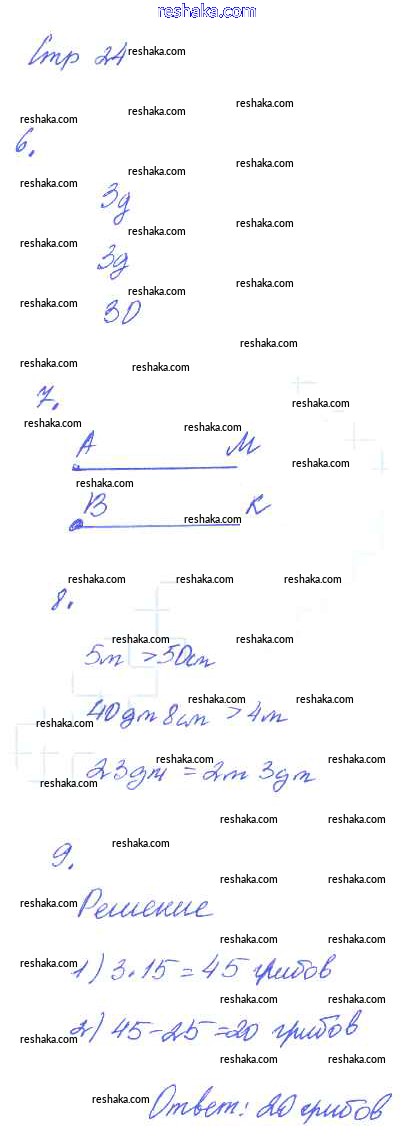 reshaka.com
Стр 24 reshaka.com
reshaka.com
reshaka.com reshaka.com
6.
reshaka.com
reshaka.com
reshaka.com
3д
reshaka.com
reshaka.com
reshaka.com
3д
reshaka.com
reshaka.com
reshaka.com
30
reshaka.com
reshaka.com reshaka.com
7.
reshaka.com
reshaka.com reshaka.com
A M
reshaka.com
reshaka.com
B K
reshaka.com
reshaka.com reshaka.com reshaka.com
8.
reshaka.com reshaka.com
5m > 50cm
reshaka.com reshaka.com
40дm 8cm > 4m
reshaka.com
reshaka.com reshaka.com
23дm = 2m 3дm
reshaka.com
reshaka.com reshaka.com
reshaka.com
9.
reshaka.com reshaka.com
reshaka.com
Решение
reshaka.com reshaka.com
reshaka.com
1) 3·15=45 грибов
reshaka.com reshaka.com
2) 45-25=20 грибов
reshaka.com
reshaka.com reshaka.com
reshaka.com
Ответ: 20 грибов